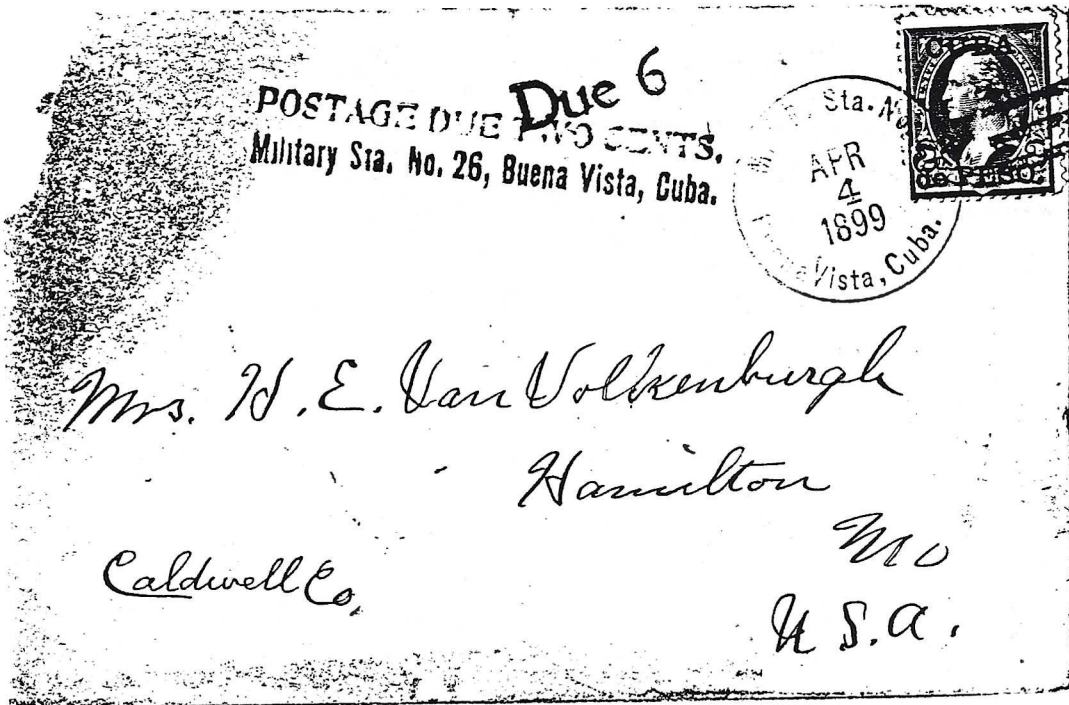 Due 6
POSTAGE DUE TWO CENTS.
Military Sta. No. 26, Buena Vista, Cuba.
Sta. No.
APR
4
1899
Buena Vista, Cuba.
CUBA
de PESO.
Mrs. H. E. Van Volkenburgh
Hamilton
Mo
Caldwell Co,
U. S. A.